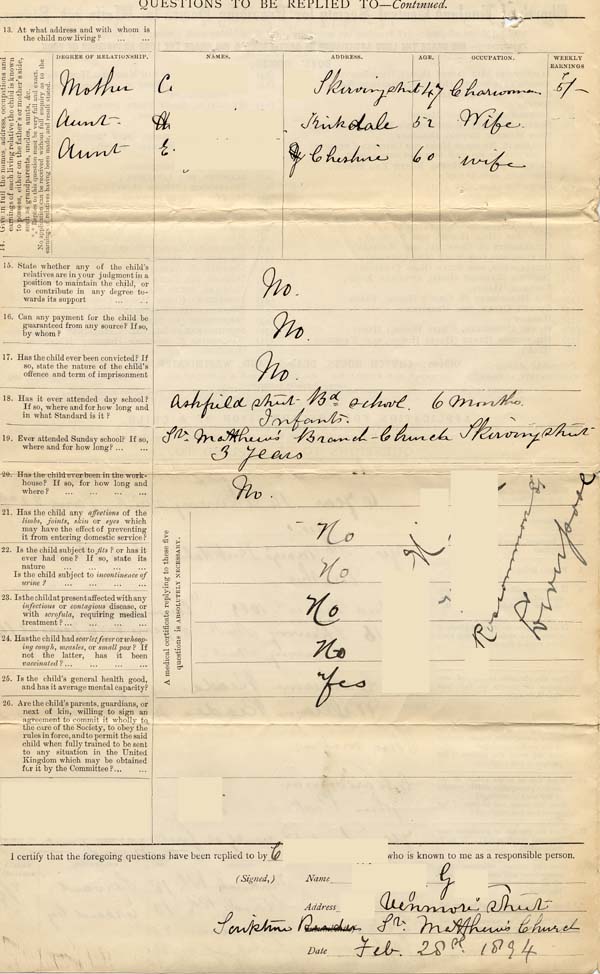 QUESTIONS TO BE REPLIED TO—Continued.
13. At what address and with whom is
the child now living? ... ...
14. Give in full the names, address, occupations and
earnings of each living relative the child is known
to possess, either on the father's or mother's side,
such as grandparents, uncles, aunts, &c.
DEGREE OF RELATIONSHIP. NAMES. ADDRESS. AGE. OCCUPATION. WEEKLY EARNINGS
Mother C. Skirving street 47 Charwoman 5/-
Aunt Kirkdale 52 Wife
Aunt E. Cheshire 60 wife
15. State whether any of the child's
relatives are in your judgment in a
position to maintain the child, or
to contribute in any degree to-
wards its support ... ...
No.
16. Can any payment for the child be
guaranteed from any source? If so,
by whom?
No.
17. Has the child ever been convicted? If
so, state the nature of the child's
offence and term of imprisonment
No.
18. Has it ever attended day school?
If so, where and for how long and
in what Standard is it?
Ashfield street Bd school. 6 months.
Infants.
19. Ever attended Sunday school? If so,
where and for how long? ... ...
St. Matthew's Branch-Church Skirving street
3 years
20. Has the child ever been in the work-
house? If so, for how long and
where? ... ... ... ...
No.
A medical certificate replying to these five
questions is ABSOLUTELY NECESSARY.
21. Has the child any affections of the
limbs, joints, skin or eyes which
may have the effect of preventing
it from entering domestic service?
No
22. Is the child subject to fits? or has it
ever had one? If so, state its
nature ... ... ... ...
Is the child subject to incontinence of
urine? ... ... ... ...
No
23. Is the child at present affected with any
infectious or contagious disease, or
with scrofula, requiring medical
treatment? ... ... ... ...
No
24. Has the child had scarlet fever or whoop-
ing cough, measles, or small pox? If
not the latter, has it been
vaccinated? ... ... ... ...
No
25. Is the child's general health good,
and has it average mental capacity?
Yes
Liverpool
26. Are the child's parents, guardians, or
next of kin, willing to sign an
agreement to commit it wholly to
the care of the Society, to obey the
rules in force, and to permit the said
child when fully trained to be sent
to any situation in the United
Kingdom which may be obtained
for it by the Committee? ... ...
I certify that the foregoing questions have been replied to by C who is known to me as a responsible person.
(Signed,) Name G
Address Venmore street
Scripture St. Matthew's Church
Date Feb. 28th. 1894